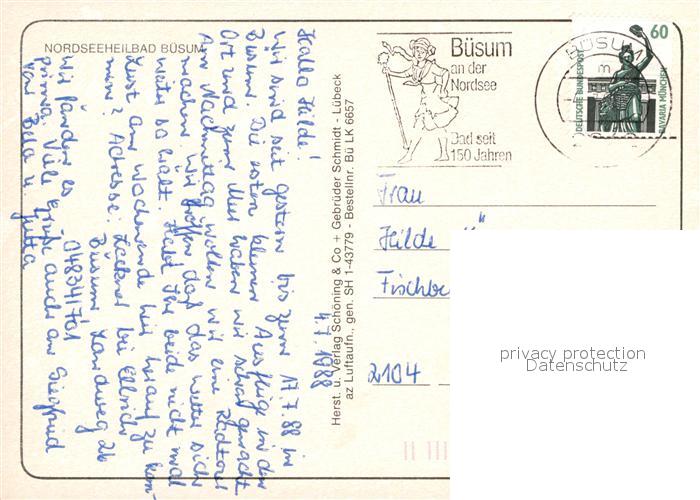 NORDSEEHEILBAD BÜSUM
4.7.1988
Hallo Hilde!
Wir sind seit gestern bis zum 17.7.88 in
Büsum. Die ersten kleinen Ausflüge in den
Ort und zum Meer haben wir schon gemacht
Am Nachmittag wollen wir eine Radtour
machen. Wir hoffen, daß das Wetter sich
weiter so hält. Habt Ihr beide nicht mal
Lust am Wochenende hier herauf zu kom-
men? Adresse: Lackner bei Ellrich
Büsum, Landweg 26
04834/1701
Wir fänden es
prima. Viele Grüße auch an Siegfried
von Bela u. Jutta
Herst. u. Verlag Schöning & Co + Gebrüder Schmidt - Lübeck
az Luftaufn., gen. SH 1-43779 - Bestellnr. Bü LK 6657
Büsum
an der
Nordsee
Bad seit
150 Jahren
BÜSUM
m
60
DEUTSCHE BUNDESPOST
BAVARIA MÜNCHEN
Frau
Hilde
2104
privacy protection
Datenschutz